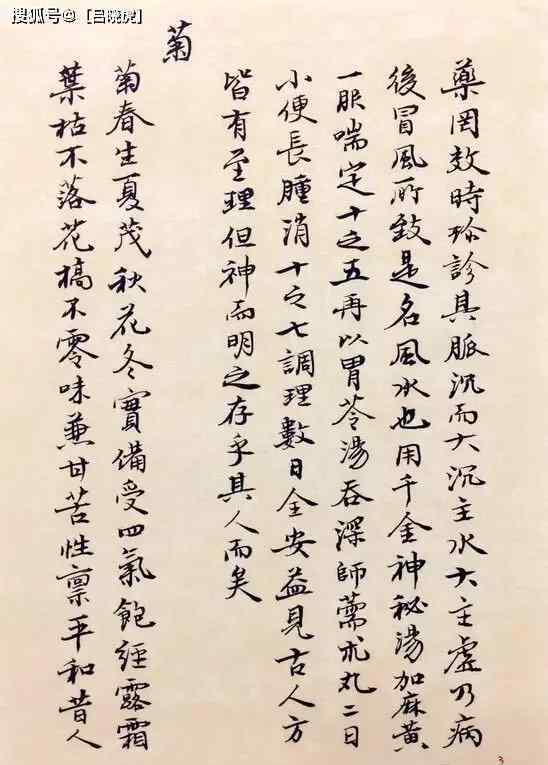 搜狐号@【吕晓虎】
藥罔效時珍診其脈沉而大沉主水大主虛乃病
後冒風所致是名風水也用千金神秘湯加麻黃
一服喘定十之五再以胃苓湯吞深師薷朮丸二日
小便長腫消十之七調理數日全安益見古人方
皆有至理但神而明之存乎其人而矣
菊
菊春生夏茂秋花冬實備受四氣飽經露霜
葉枯不落花槁不零味兼甘苦性禀平和昔人
3